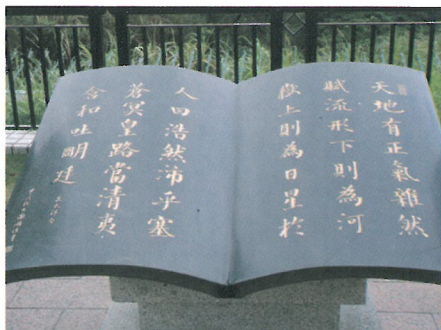 天地有正氣雜然
賦流形下則為河
嶽上則為日星於
人曰浩然沛乎塞
蒼冥皇路當清夷
含和吐明廷